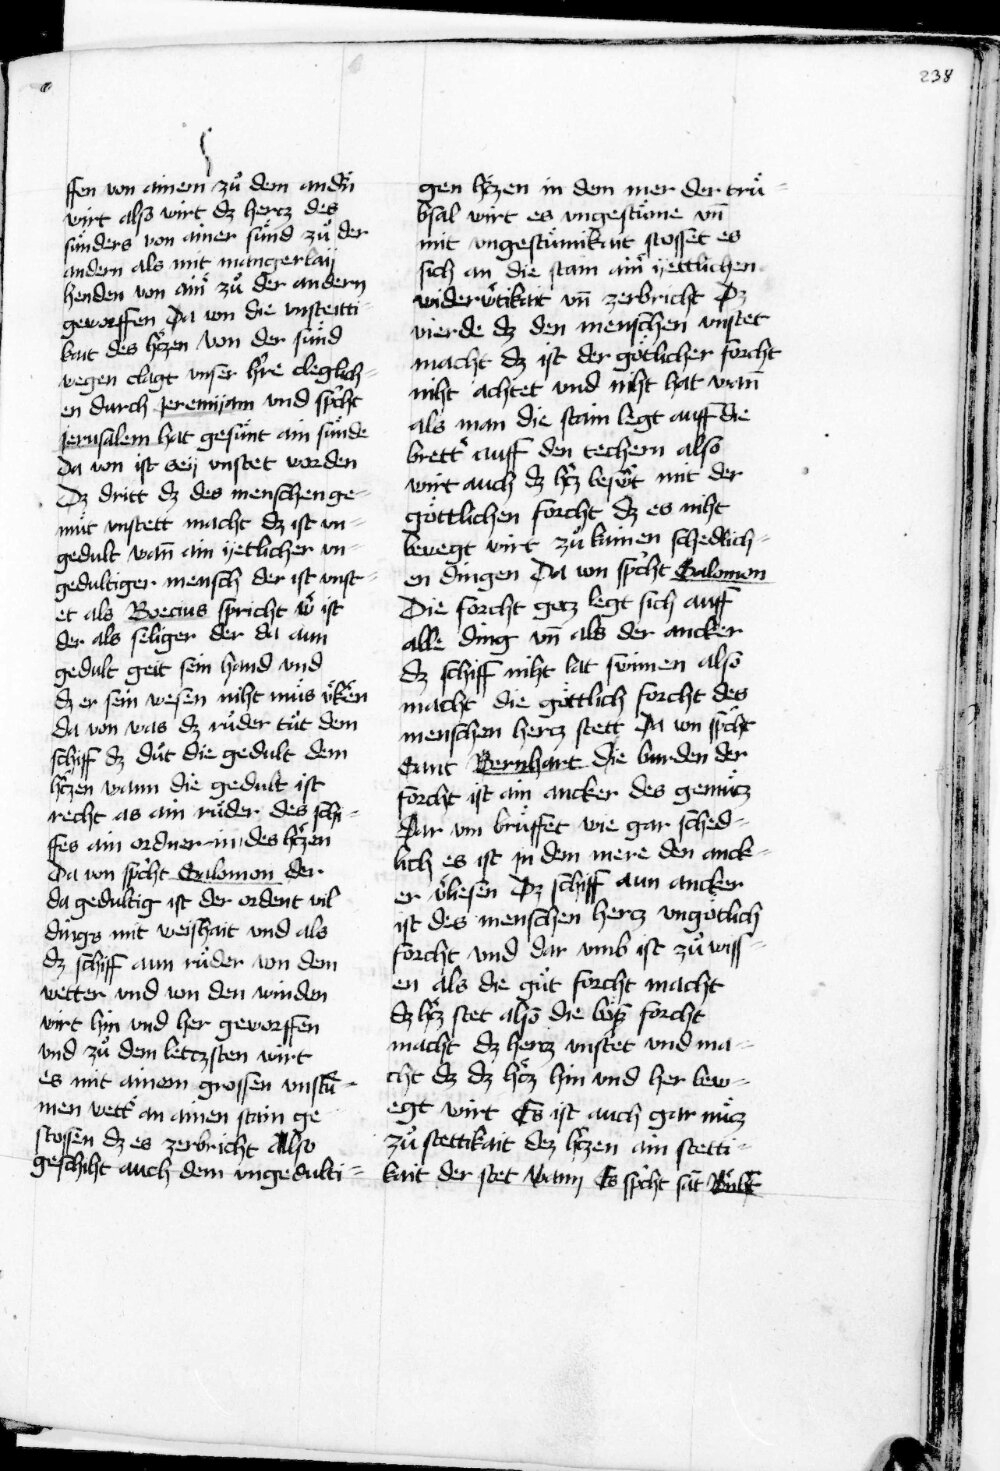 238
ffen von ainem zuͦ dem andn̄
wirt also wirt dz hercz des
sünders von ainer sünd zuͦ der
andern als mit mangerlaij
henden von ain̄ zuͦ der andern
geworffen Da von die vnstetti-
kait des hr̄czen von der sünd
wegen clagt vnser hr̄re cleglich-
en durch Jeremijam vnd spͥcht
Jerusalem hat gesünt ain sünde
Da von ist seij vnstet worden
Dz dritt dz des menschen ge-
müt vnstett macht dz ist vn-
gedult wan̄ ain ijetlicher vn-
gedultiger mensch der ist vnst-
et als Boecius spricht w̄ ist
der als seliger der da aun
gedult geit sein hand vnd
dz er sein wesen niht müs v̄ken̄
da von was dz ruͦder tuͦt dem
schiff dz duͦt die gedult dem
hr̄czen wann die gedult ist
recht as ain ruͦder des schi-
ffes ain ordnerin des hr̄czen
Da von spͥcht Salomon der
da gedultig ist der ordent vil
dings mit weishait vnd als
dz schiff aun ruͦder von dem
wetter vnd von den winden
wirt hin vnd her geworffen
vnd zuͦ dem letczsten wirt
es mit ainem grossen vnstü-
men wett̄ an ainen stain ge
stossen dz es zerbricht Also
geschiht auch dem vngedulti-
gen hr̄czen in dem mer der trü-
bsal wirt es vngestüme vn̄
mit vngestümikait stosset es
sich an die stain ain̄ ijettlichen
widerw̄tikait vn̄ zerbricht Dz
vierde dz den menschen vnstet
macht dz ist der götlicher forcht
niht achtet vnd niht hat wan̄
als man die stain legt auff die
brett̄ auff den techern also
wirt auch dz hr̄cz besw̄t mit der
göttlichen forcht dz es niht
bewegt wirt zuͦ kainen schedlich-
en dingen Da von spͥcht Salomon
Die forcht gocz legt sich auff
alle ding vn̄ als der ancker
dz schiff niht lat swimen also
macht die göttlich forcht des
menschen hercz stett Da von spͥcht
Sant Bernhart die burden der
forcht ist ain ancker des gemücz
Dar vm brüffet wie gar sched-
lich es ist jn dem mere den anck-
er v̄liesen Dz schiff aun ancker
ist des menschen hercz vngötlich
forcht vnd dar vmb ist zuͦ wiss-
en als die guͦt forcht macht
dz hr̄cz stet also die böß forcht
macht dz hercz vnstet vnd ma-
cht dz dz hr̄cz hin vnd her bew-
egt wirt Es ist auch gar nücz
zuͦ stettikait dez hr̄czen ain stetti-
kait der stet wann Es spͥcht sāt